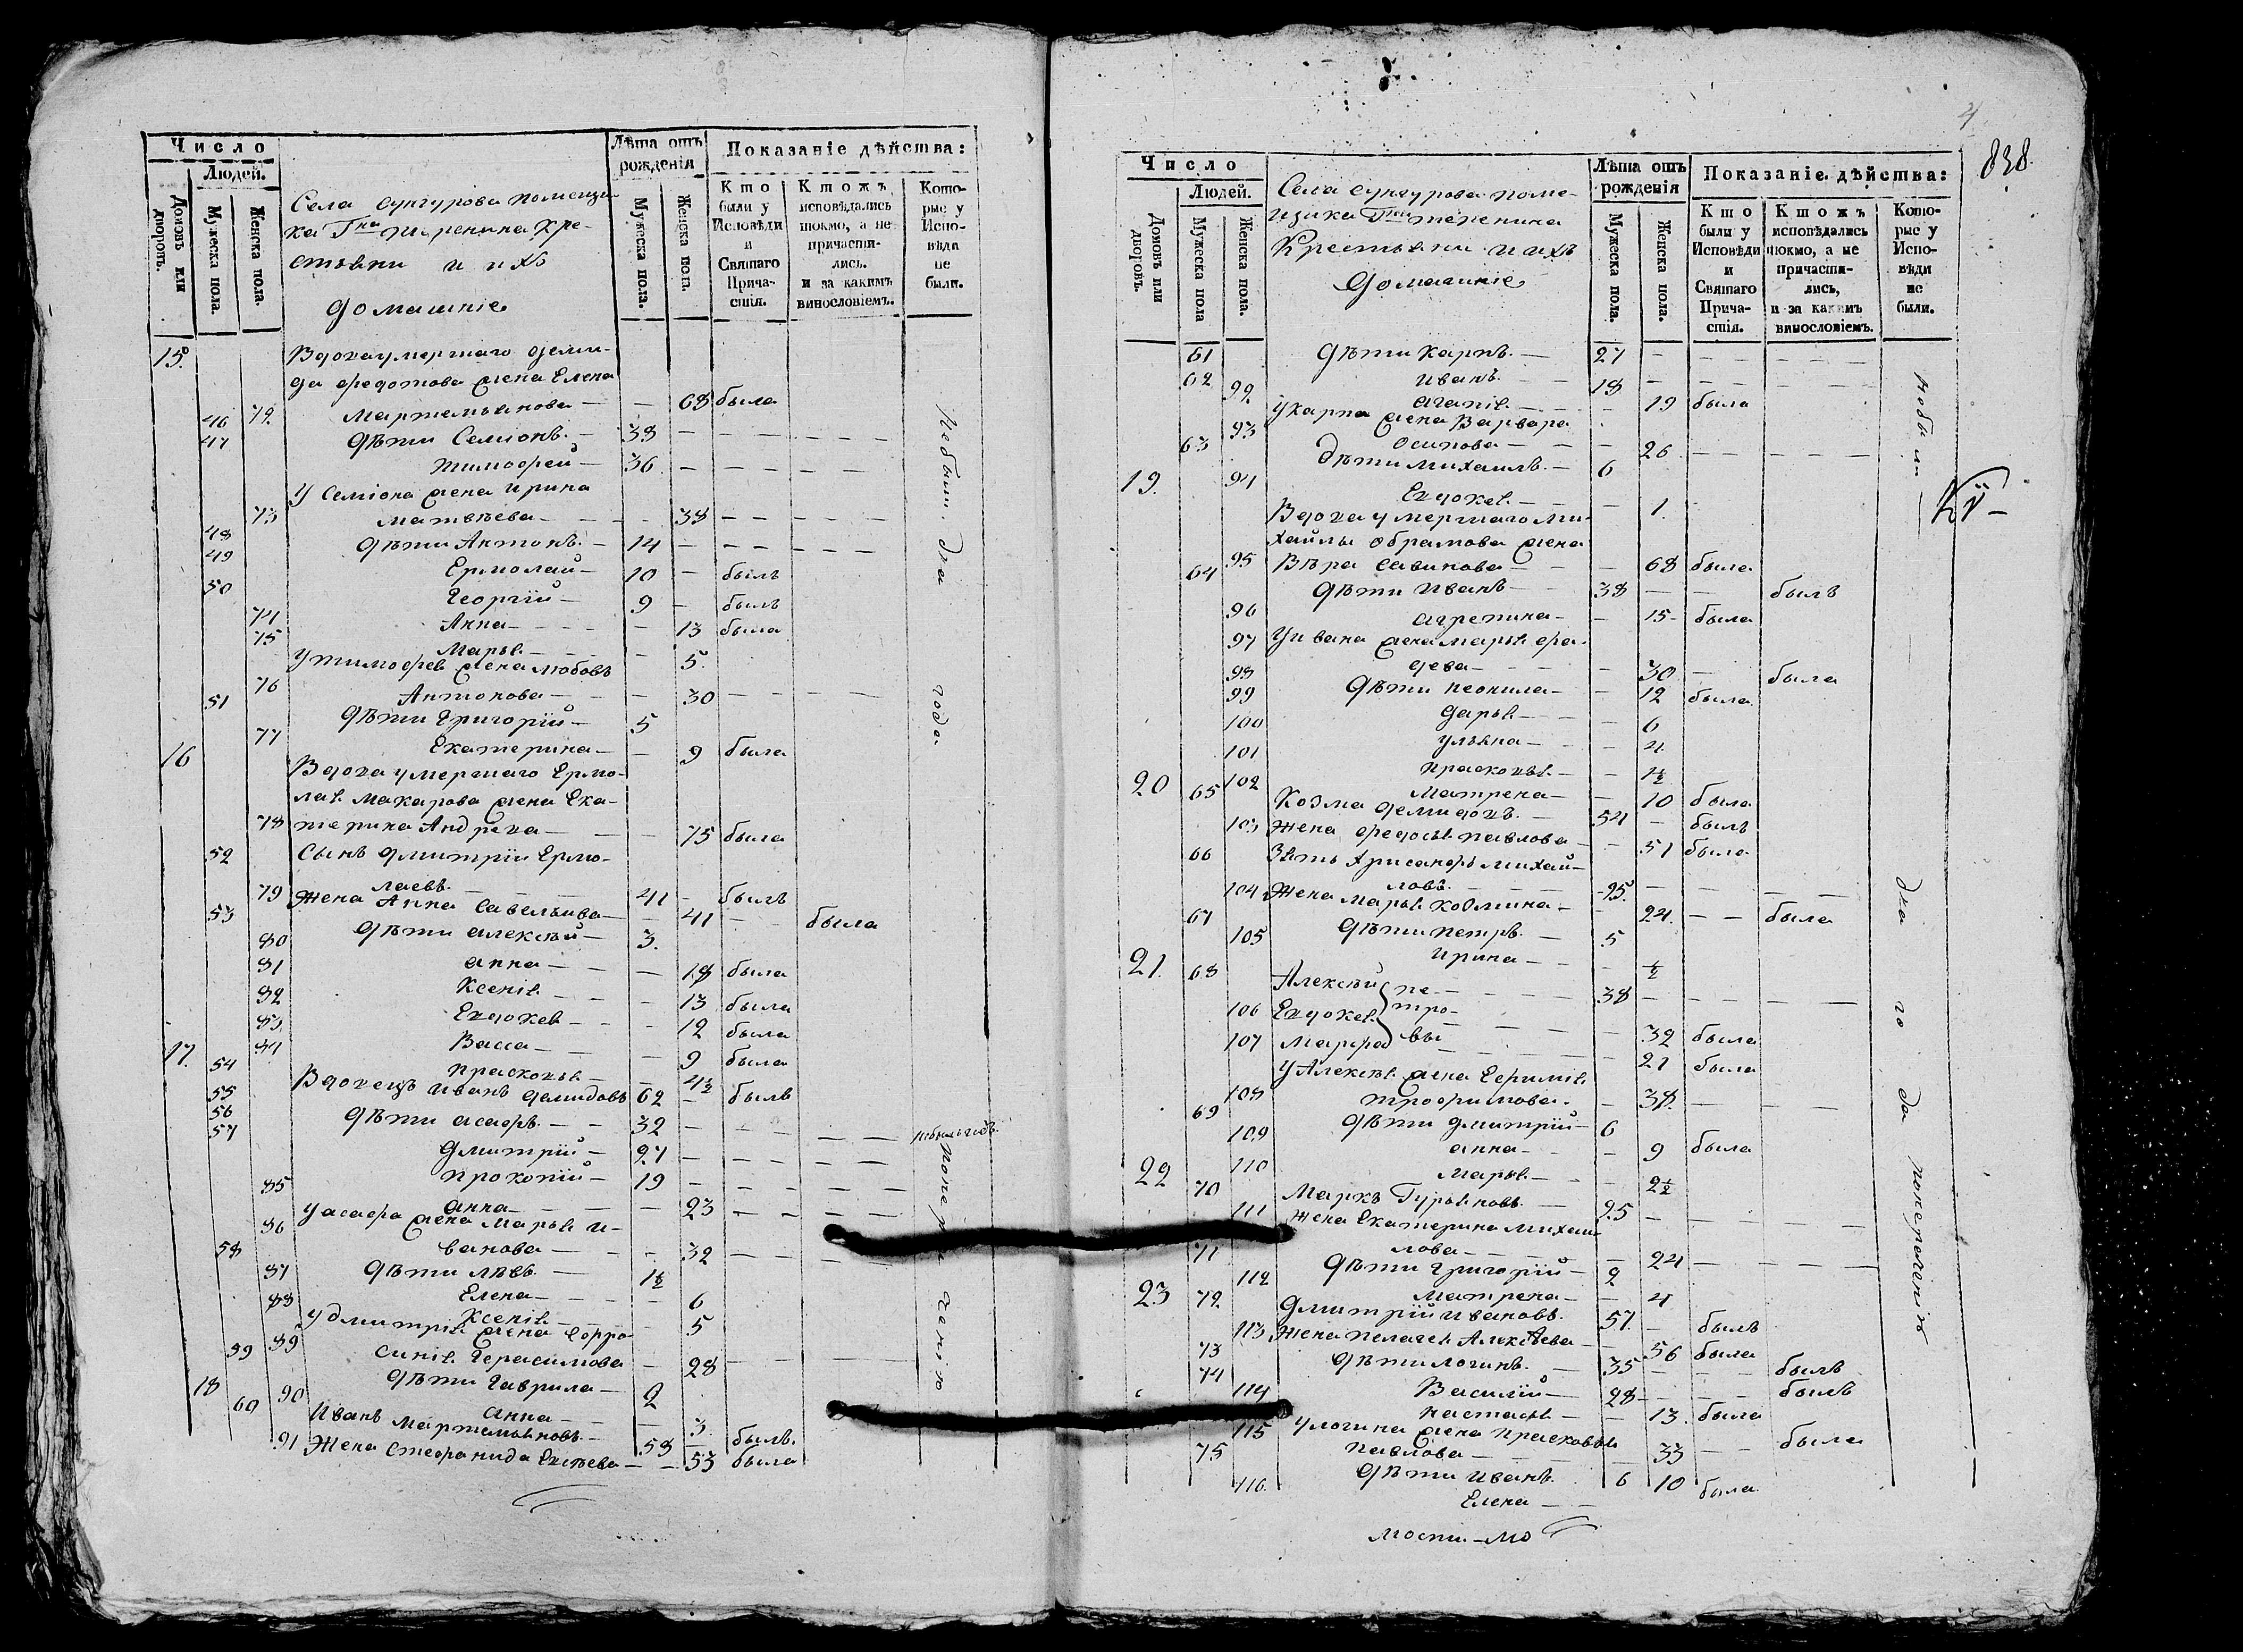 Число
Людей.
Домовъ или дворовъ.
Мужеска пола.
Женска пола.
Села Сунгурова помещи-
ка Гна Теренина Кре-
стьяни и ихъ
домашніе
Лѣта отъ рожденія
Мужеска пола.
Женска пола.
Показаніе дѣйства:
Кто были у Исповѣди и Святаго Прича-стія.
Ктожъ исповѣдались токмо, а не причасти-лись. и за какимъ винословіемъ.
Кото-рые у Испо-вѣди не были.
15. Вдова умершаго Деми-
да Федотова жена Елена
72 Мартемьянова — — 68 была
46 дѣти Семіонъ. — 38 — — — — —
47 Тимофей — 36. — — — — —
У Семіона жена Ирина
73 Матвѣева — — 38 — — — — —
48 дѣти Антонъ. — 14 — — — — — —
49 Ермолай — 10 — былъ
50 Георгій — 9 — былъ
74 Анна — — 13 была
75 Марья — — 5.
У Тимофея жена Любовь
76 Антонова — — 30 — — — — —
51 дѣти Григорій — 5
77 Екатерина — — 9 была
16 Вдова умершаго Ермо-
лая Макарова жена Ека-
78 терина Андреева — — 75 была
52 Сынъ Дмитрій Ермо-
лаевъ. — 41 — былъ
79 Жена Анна Савельива — — 41 — — была
53 дѣти Алексѣй — 3.
80 Анна — — 18 была
81 Ксенія — — 13 была
82 Евдокея — — 12 была
83 Васса — — 9 была
84 Прасковья — — 4½
17. 54 Вдовецъ Иванъ Демидовъ 62 — былъ
55 дѣти Асафъ. — 32 — — — — —
56 Дмитрій — 27 — — — — —
57 Прокопій — 19 — — — — —
85 Анна — — 23 — — — — —
У Асафа жена Марья И-
86 ванова — — 32 — — — —
58 дѣти Лѣвъ. — 1½
87 Елена — — 6
88 Ксенія — — 5
У Дмитрія жена Ефро-
89 синія Герасимова — 28 — — —
59 дѣти Гаврила — 2
90 Анна — — 3.
18 60 Иванъ Мартемьяновъ. — 58 — былъ.
91 Жена Стефанида Евсѣева — — 53 была
Небыли два года по нерачению
838
4
Число
Людей.
Домовъ или дворовъ.
Мужеска пола
Женска пола.
Села Сунгурова поме-
щика Гна Теренина
Крестьяни и ихъ
домашніе
Лѣта отъ рожденія
Мужеска пола.
Женска пола.
Показаніе дѣйства:
Кто были у Исповѣди и Святаго Прича-стія.
Ктожъ исповѣдались токмо, а не причасти-лись, и за какимъ винословіемъ.
Кото-рые у Испо-вѣди не были.
61 дѣти Карпъ. — 27 — — — — —
62 Иванъ. — 18 — — — — —
92 Агапія — — 19 была
У Карпа жена Варвара
93 Осипова — — 26 — — — — —
63 Дѣти Михаилъ. — 6
94 Евдокея — — 1.
19. Вдова умершаго Ми-
хайлы Обрамова жена
95 Вѣра Савинова — — 68 была
64 дѣти Иванъ — 38 — — былъ
96 Агрепина — — 15 — была
У Ивана жена Марья Фа-
97 деева — — 30 — была
98 дѣти Неонила — — 12 была
99 Дарья — — 6
100 Ульяна — — 4.
101 Прасковья — — 1½
102 Матрена — — 10 была
20 65 Козма Демидовъ. — 54 — былъ
103 Жена Федосья Павлова — — 51 была
66 Зять Хрисанфъ Михай-
ловъ. — 25. — — — —
104 Жена Марья Козмина — — 24. — — была
67 дѣти Петръ. — 5
105 Ирина — — ½
21. 68 Алексѣй Пе- — 38 — — — — —
106 Евдокея тро- — 32 была
107 Марфа вы — — 21 была
У Алексѣя жена Ефимія
108 Трофимова. — 38. — — —
69 дѣти Дмитрій — 6
109 Анна — — 9 была
110 Марья — — 2½
22 70 Маркъ Гурьяновъ — 25 — — — — —
111 Жена Екатерина Михаи-
лова — — 24 — — — —
71 дѣти Григорій — 2
112 Матрена — — 4
23 72. Дмитрій Ивановъ. 57. — былъ
113 Жена Пелагея Алексѣева — 56 была
73 дѣти Логинъ. — 35 — — — былъ
74 Василій — 28 — — — былъ
114 Настасья — — 13. была
У Логина жена Прасковья
115 Павлова — — 33 — — была
75 дѣти Иванъ. 6
116. Елена — — 10 была
Небыли два года по нерачению